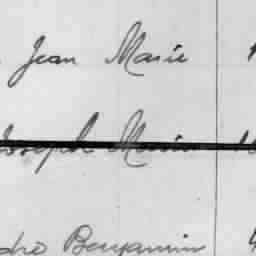 Jean Marie
Joseph Marie
Benjamin